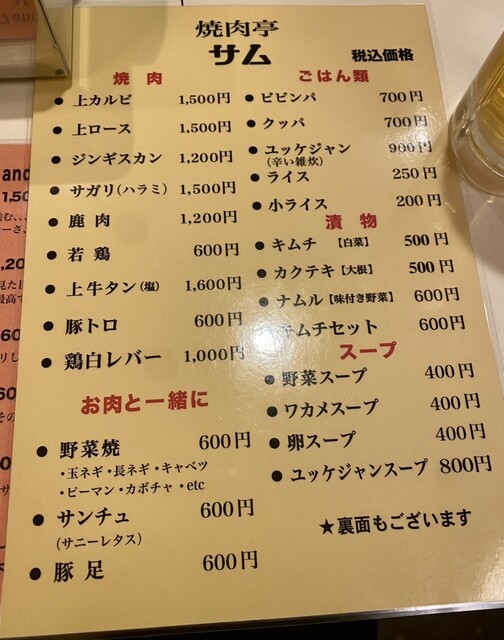 焼肉亭
サム
税込価格
焼肉
● 上カルビ 1,500円
● 上ロース 1,500円
● ジンギスカン 1,200円
● サガリ(ハラミ) 1,500円
● 鹿肉 1,200円
● 若鶏 600円
● 上牛タン(塩) 1,600円
● 豚トロ 600円
● 鶏白レバー 1,000円
お肉と一緒に
● 野菜焼 600円
・玉ネギ・長ネギ・キャベツ
・ピーマン・カボチャ・etc
● サンチュ 600円
(サニーレタス)
● 豚足 600円
ごはん類
● ビビンパ 700円
● クッパ 700円
● ユッケジャン 900円
(辛い雑炊)
● ライス 250円
● 小ライス 200円
漬物
● キムチ【白菜】 500円
● カクテキ【大根】 500円
● ナムル【味付き野菜】 600円
キムチセット 600円
スープ
● 野菜スープ 400円
● ワカメスープ 400円
● 卵スープ 400円
● ユッケジャンスープ 800円
★裏面もございます